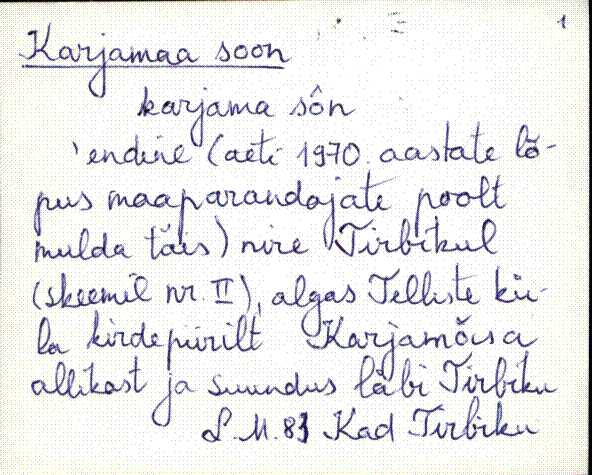 1
Karjamaa soon
karjama sôn
'endine (aeti 1970. aastate lõ-
pus maaparandajate poolt
mulda täis) nire Tirbikul
(skeemil nr. II), algas Telliste kü-
la kirdepiirilt Karjamõisa
allikast ja suundus läbi Tirbiku
L.M. 83 Kad Tirbiku